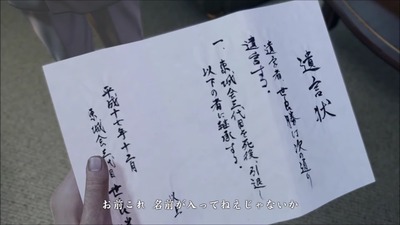 遺言状
遺言者 世良勝は次の通り
遺言する。
一、東城会三代目を死後引退し
以下の者に継承する。
以上
平成十七年十二月
東城会三代目 世良
お前これ 名前が入ってねえじゃないか